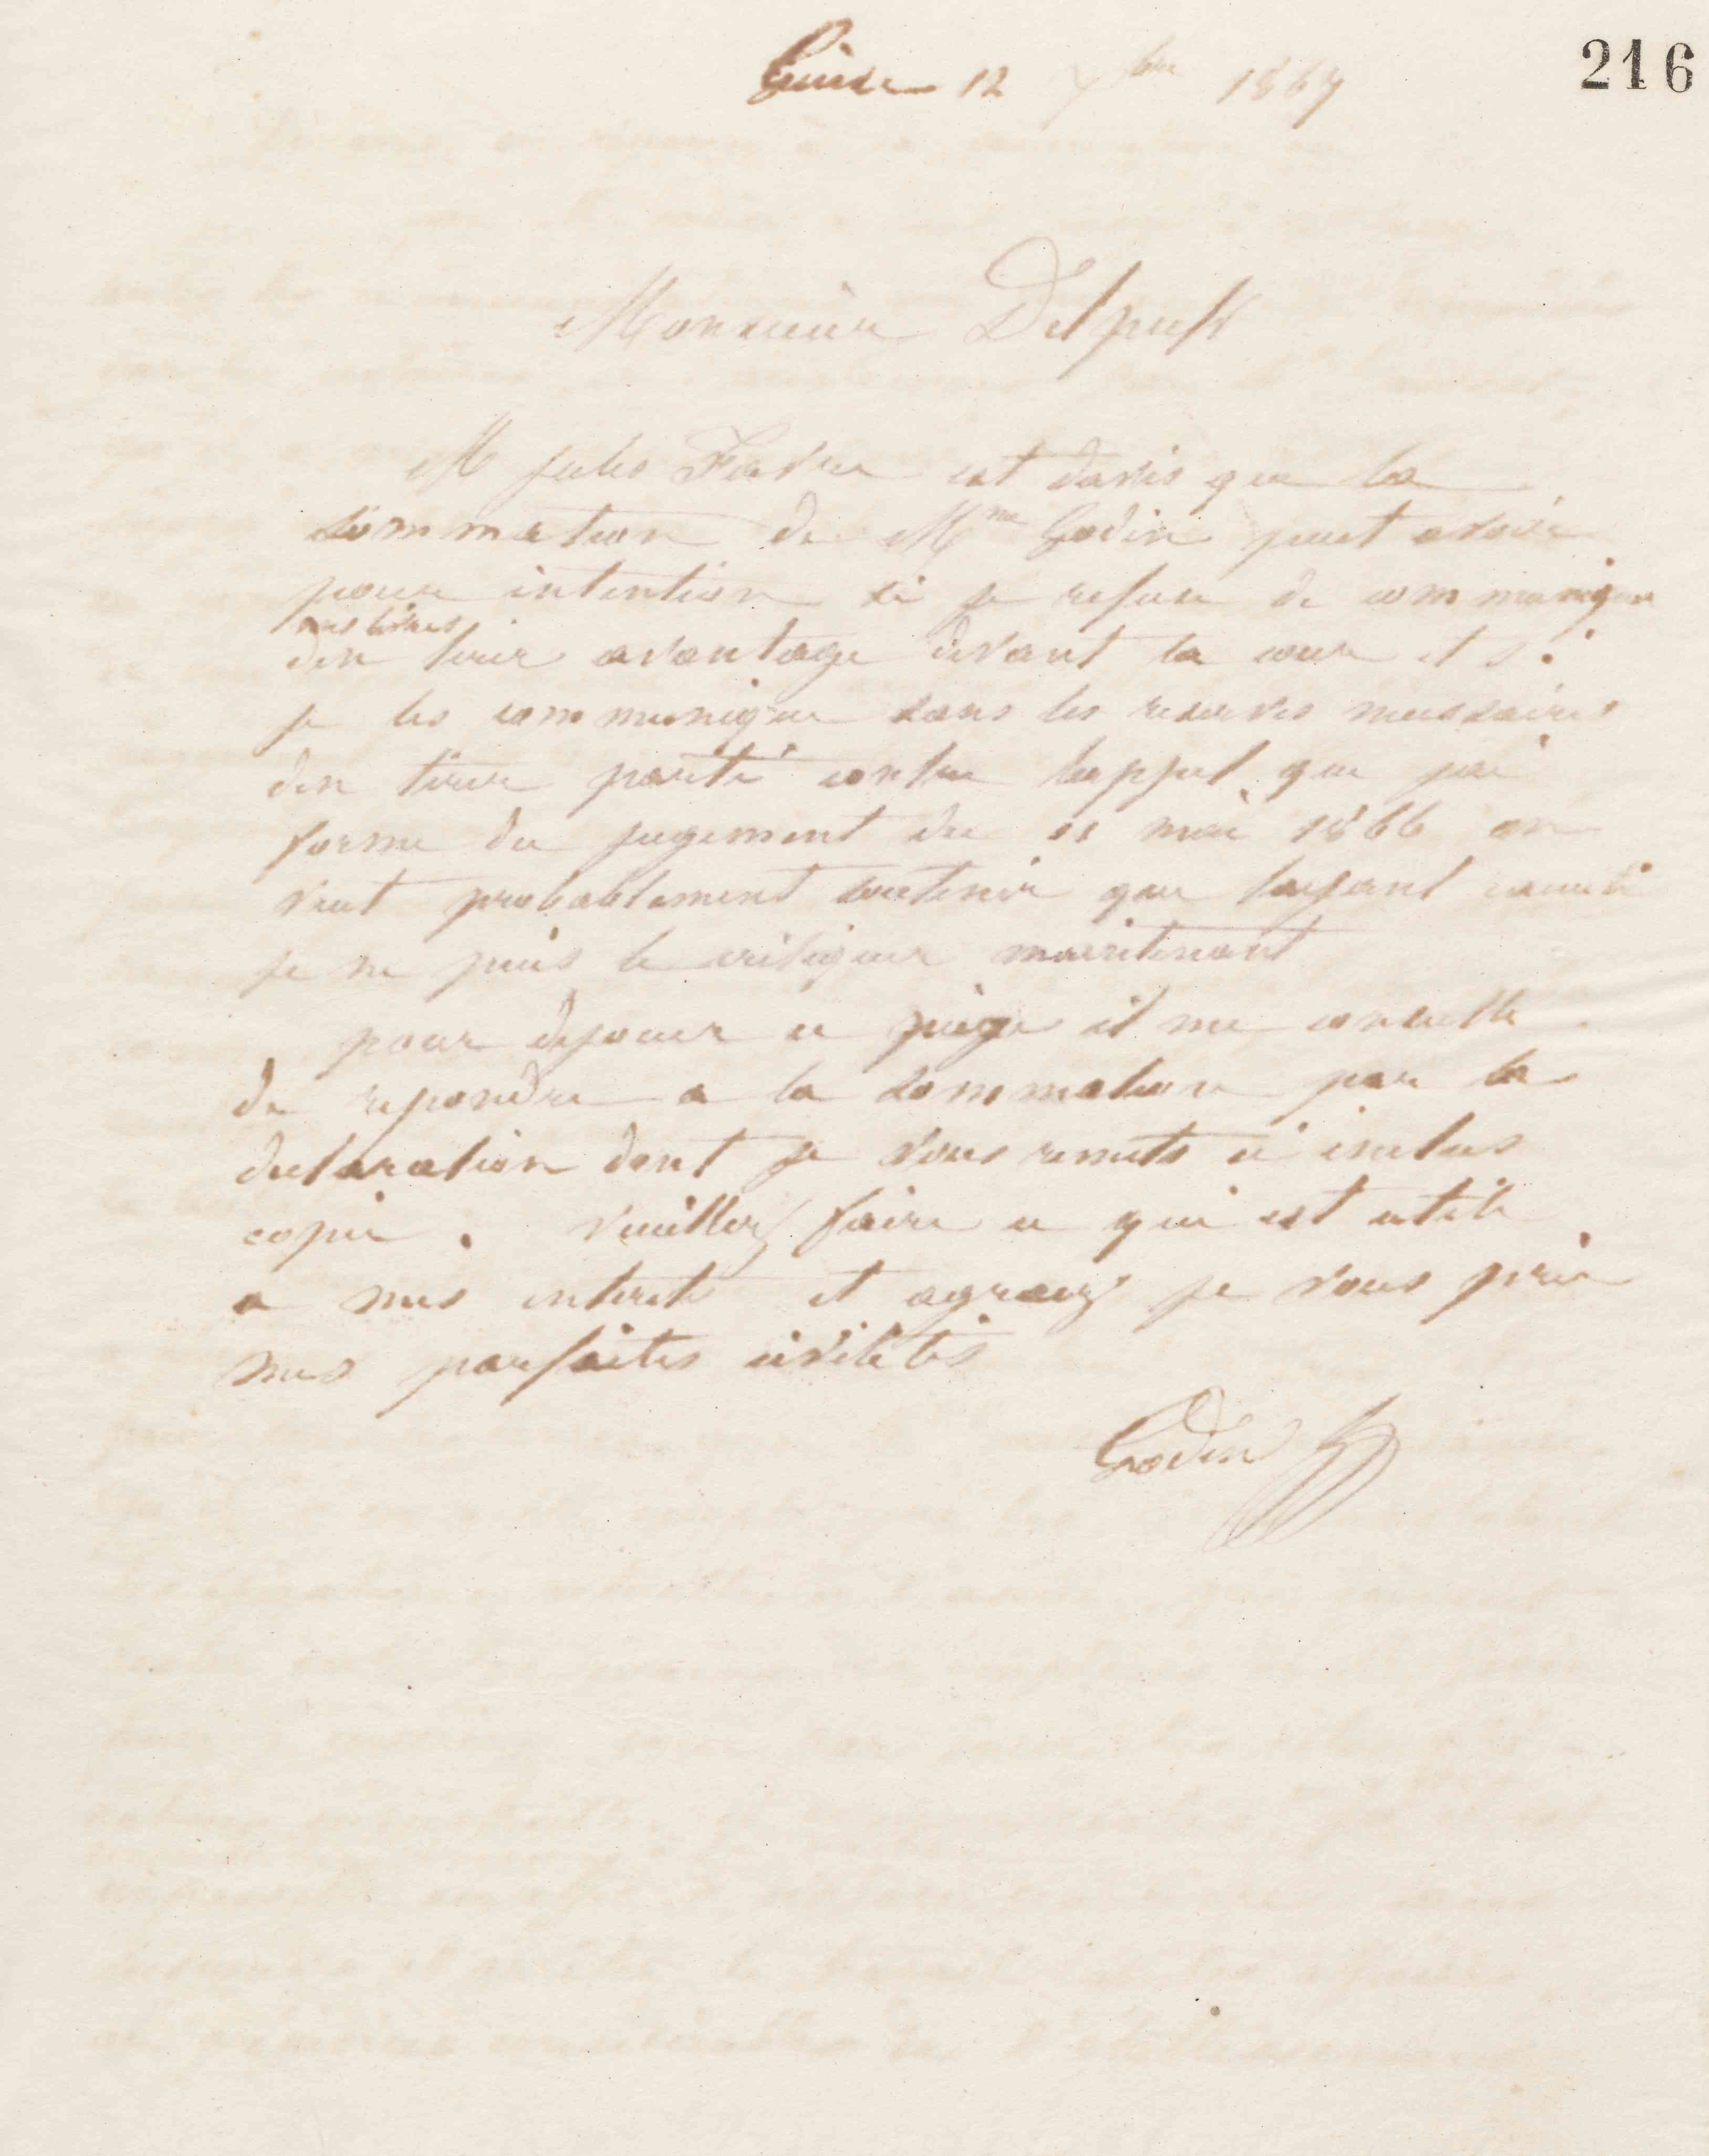 216
Guise 12 7bre 1867
Monsieur Delpech
M Jules Favre est davis que la
sommation de Mme Godin peut avoir
pour intention si je refuse de communiquer
mes livres
den tirer avantage devant la cour et si
je les communique sans les reserves necessaires
den tirer parti contre lappel que jai
forme du jugement du 11 mai 1866 on
veut probablement soutenir que layant
je ne puis le critiquer maintenant
pour dejouer ce piège il me conseille
de repondre a la sommation par la
declaration dont je vous remets ci inclus
copie . Veuillez faire ce qui est utile
a mes interets et agreez je vous prie
mes parfaites civilités
Godin